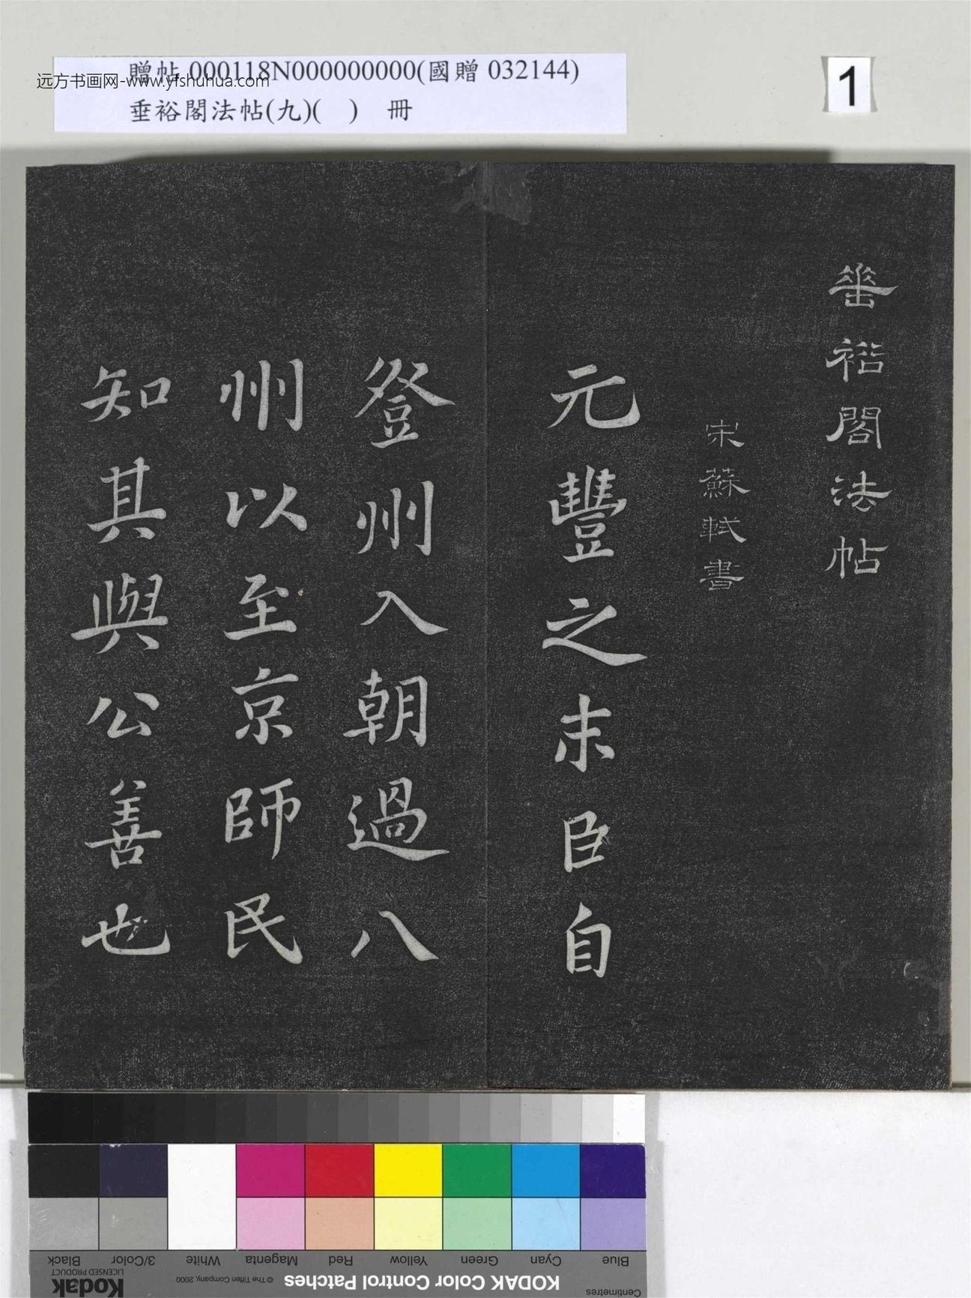 贈帖 000118N000000000(國贈 032144)
远方书画网-www.yfshuhua.com
垂裕閣法帖(九)( ) 冊
1
垂裕閣法帖
宋蘇軾書
元豐之末臣自
登州入朝過八
州以至京師民
知其與公善也
Blue Cyan Green Yellow Red Magenta White 3/Color Black
Centimetres KODAK Color Control Patches © The Tiffen Company, 2000 Kodak
LICENSED PRODUCT